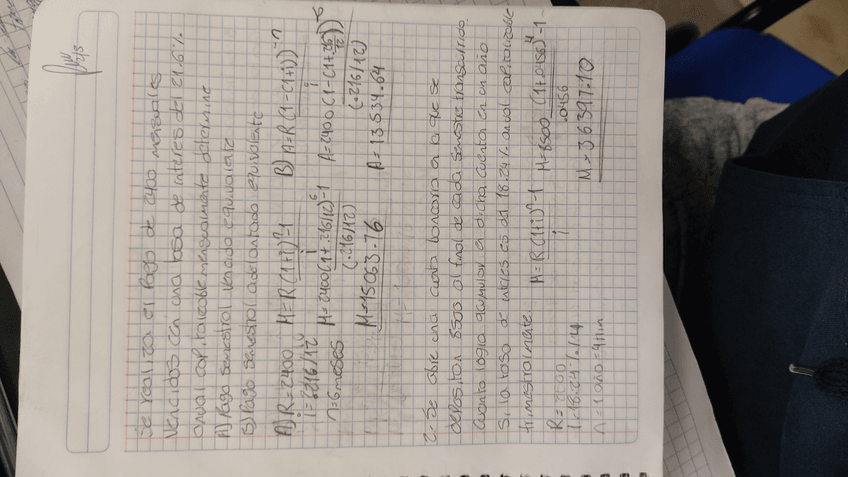 Se realiza el pago de 2400 mensuales
vencidos con una tasa de interes del 21.6%
anual capitalizable mensualmente determine
A) Pago semestral vencido equivalente
B) Pago semestral adelantado equivalente
A) R=2400 M=R(1+i)^n-1 B) A=R(1-(1+i))^-n
i=.216/12 i i
n=6 meses M=2400(1+.216/12)^6-1 A=2400(1-(1+.216/12))^-6
(.216/12) (.216/12)
M=15063.76 A=13534.64
2-Se abre una cuenta bancaria en la que se
depositan 8500 al final de cada semestre transcurrido
cuanto logra acumular en dicha cuenta en un año
si la tasa de interes es de 18.24% anual capitalizable
trimestralmente.
M=R(1+i)^n-1 M=8500(1+.0456)^4-1
R=8500 i .0456
i=18.24%/4
n=1 año=4trim M=36397.10